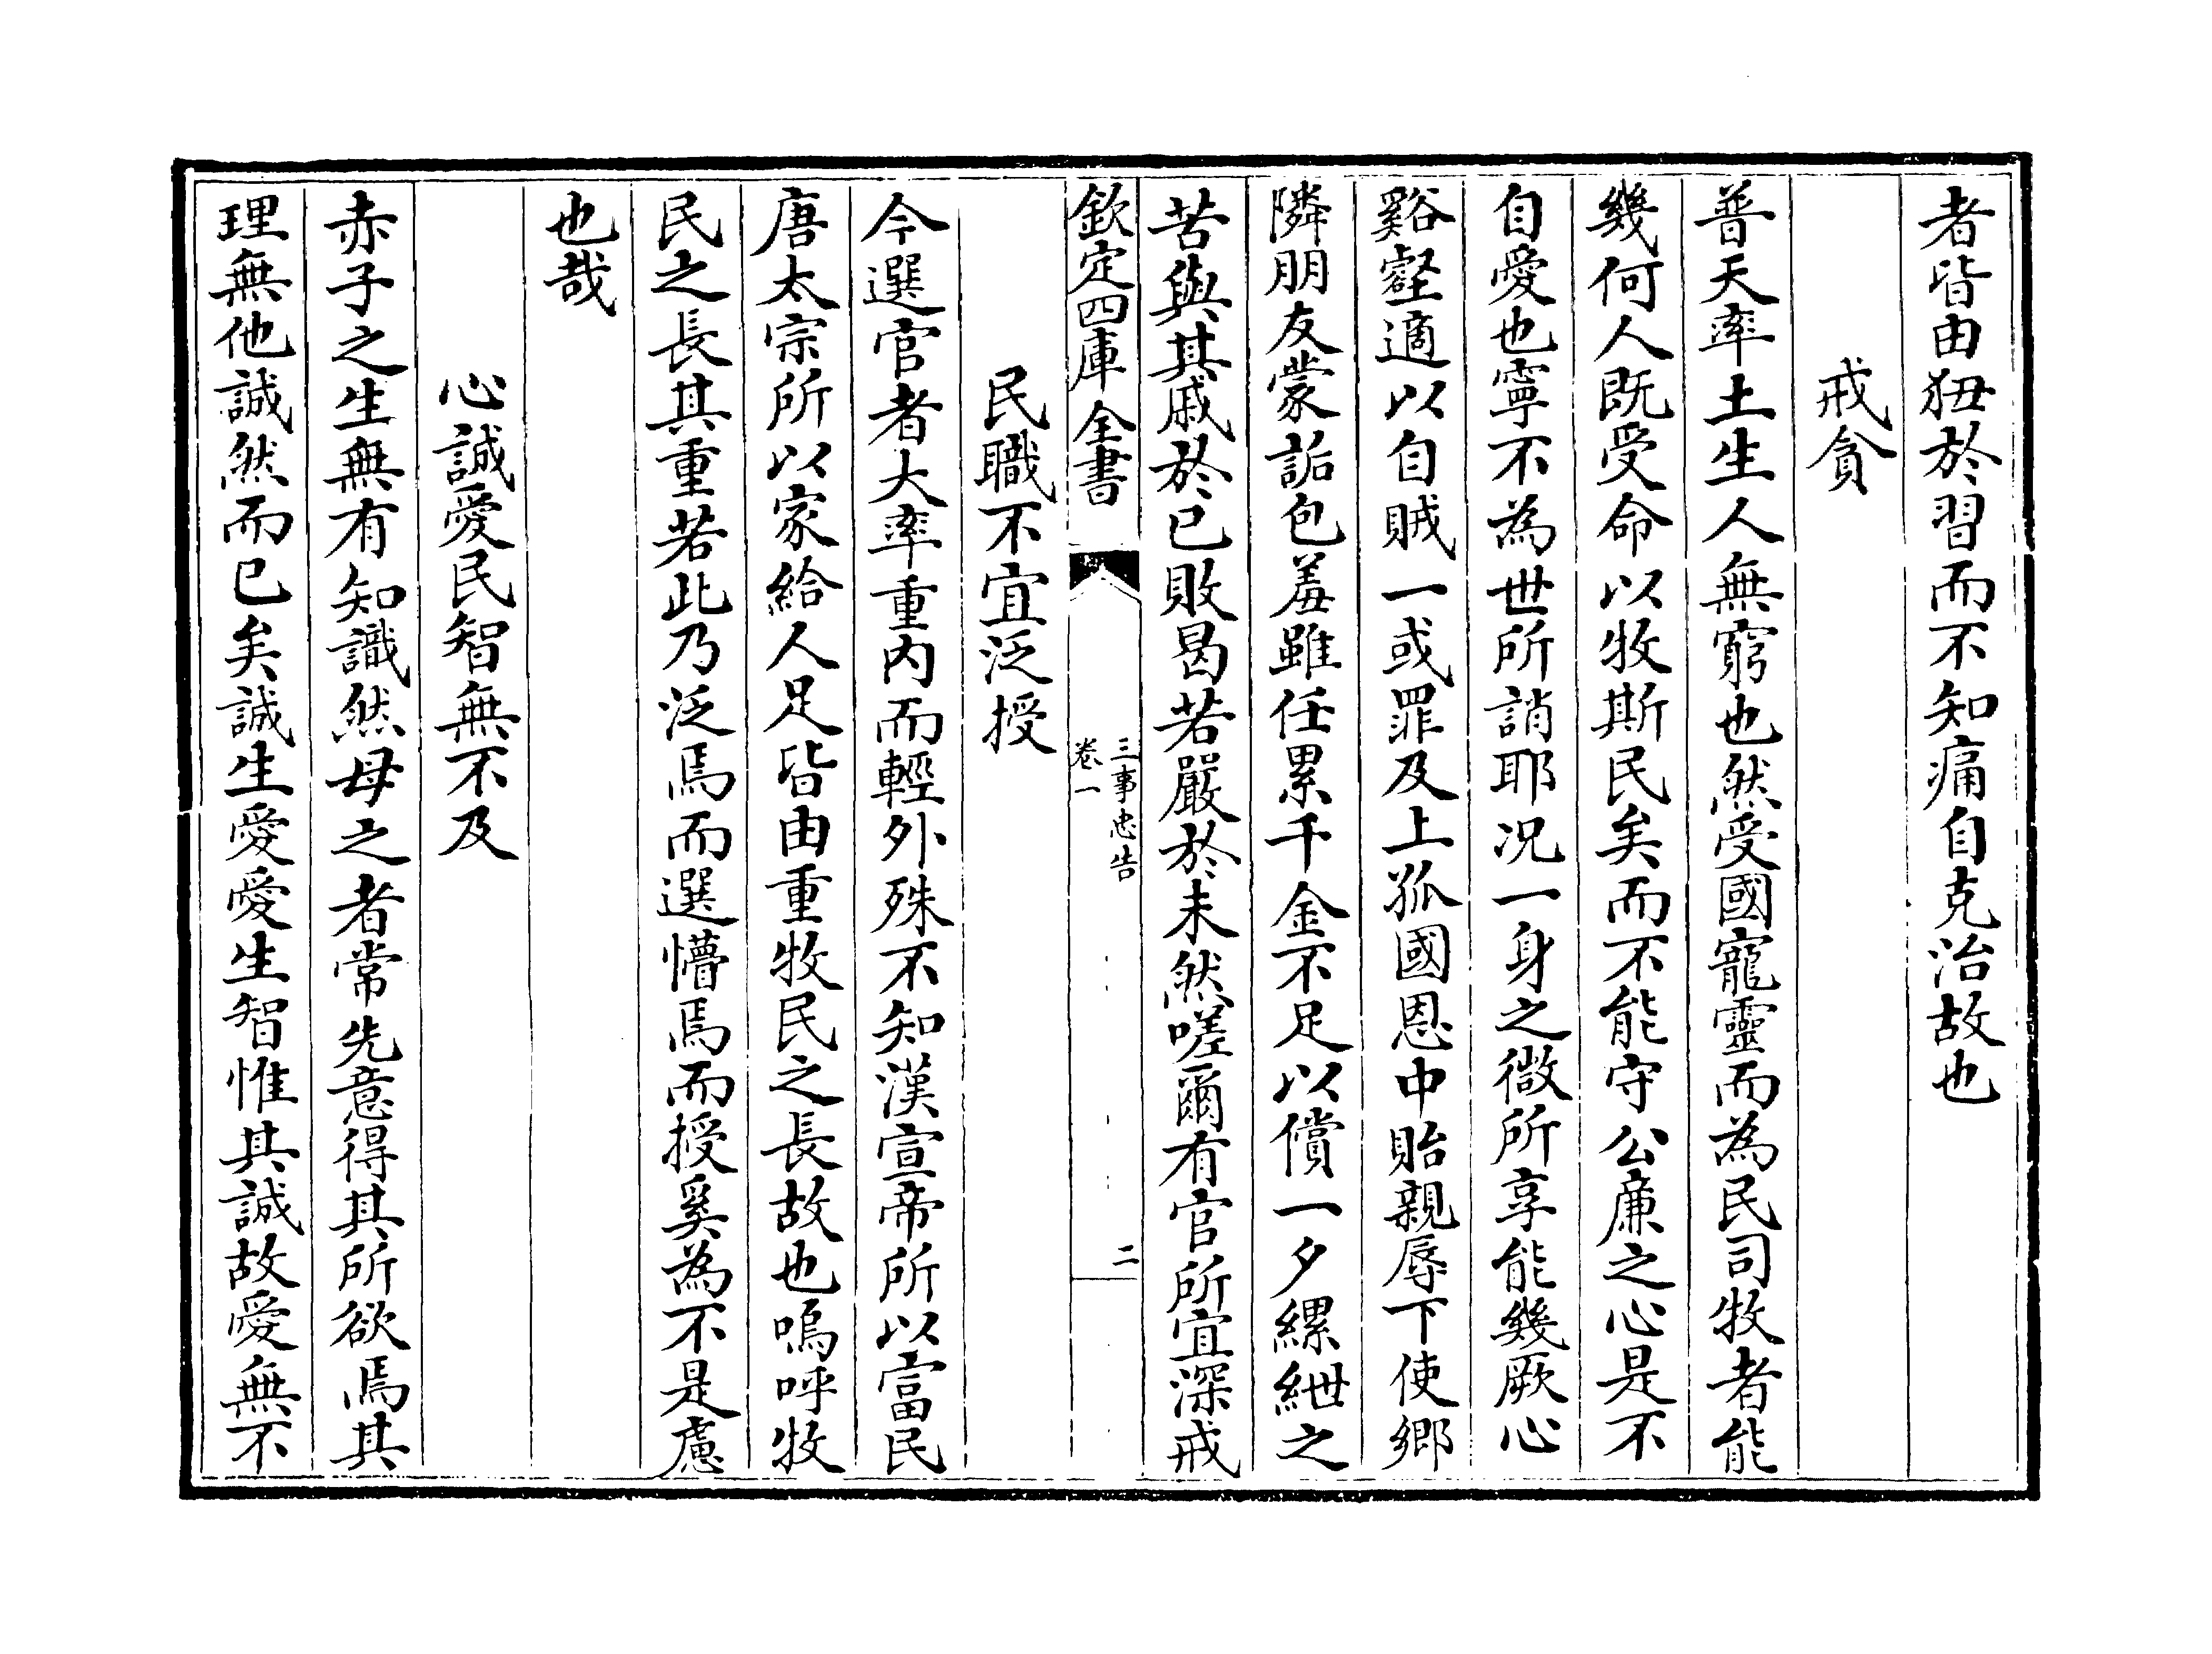 者皆由狃於習而不知痛自克治故也
戒貪
普天率土生人無窮也然受國寵靈而為民司牧者能
幾何人既受命以牧斯民矣而不能守公廉之心是不
自愛也寧不為世所誚耶况一身之微所享能幾厥心
谿壑適以自賊一或罪及上孤國恩中貽親辱下使鄉
隣朋友蒙詬包羞雖任累千金不足以償一夕縲紲之
苦與其戚於已敗曷若嚴於未然嗟爾有官所宜深戒
欽定四庫全書
三事忠告
卷一
二
民職不宜泛授
今選官者大率重内而輕外殊不知漢宣帝所以富民
唐太宗所以家給人足皆由重牧民之長故也嗚呼牧
民之長其重若此乃泛焉而選懵焉而授奚為不是慮
也哉
心誠愛民智無不及
赤子之生無有知識然母之者常先意得其所欲焉其
理無他誠然而已矣誠生愛愛生智惟其誠故愛無不